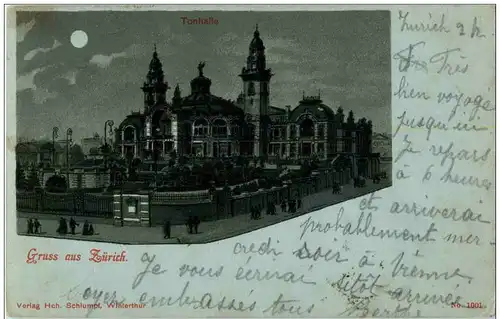 Tonhalle
Zurich 2 h
Très
bien voyagé
jusqu'ici
Je repars
à 6 heures
et arriverai
probablement mer-
credi soir à Vienne
Je vous écrirai sitôt arrivée
embrasses tous Berthe
Gruss aus Zürich.
Verlag Hch. Schlumpf, Winterthur
No. 1001